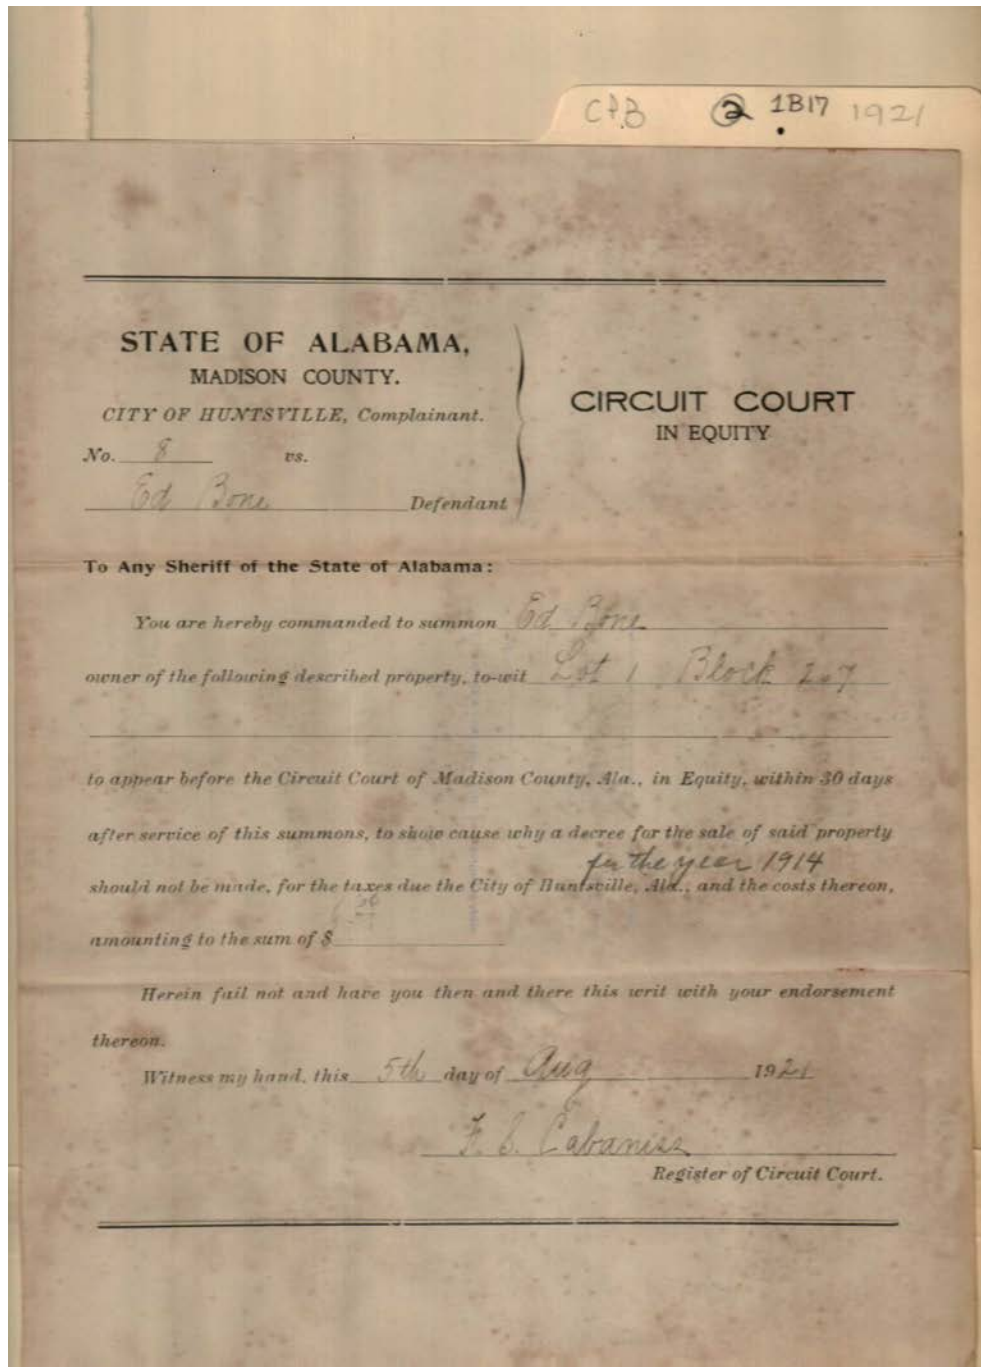 CPB ② 1B17 1921
STATE OF ALABAMA,
MADISON COUNTY.
CITY OF HUNTSVILLE, Complainant.
No. 8 vs.
Ed Bone Defendant
CIRCUIT COURT
IN EQUITY
To Any Sheriff of the State of Alabama:
You are hereby commanded to summon Ed Bone
owner of the following described property, to-wit Lot 1 Block 207
to appear before the Circuit Court of Madison County, Ala., in Equity, within 30 days
after service of this summons, to show cause why a decree for the sale of said property
for the year 1914
should not be made, for the taxes due the City of Huntsville, Ala., and the costs thereon,
amounting to the sum of $
Herein fail not and have you then and there this writ with your endorsement
thereon.
Witness my hand, this 5th day of Aug 1921
F. S. Cabaniss
Register of Circuit Court.